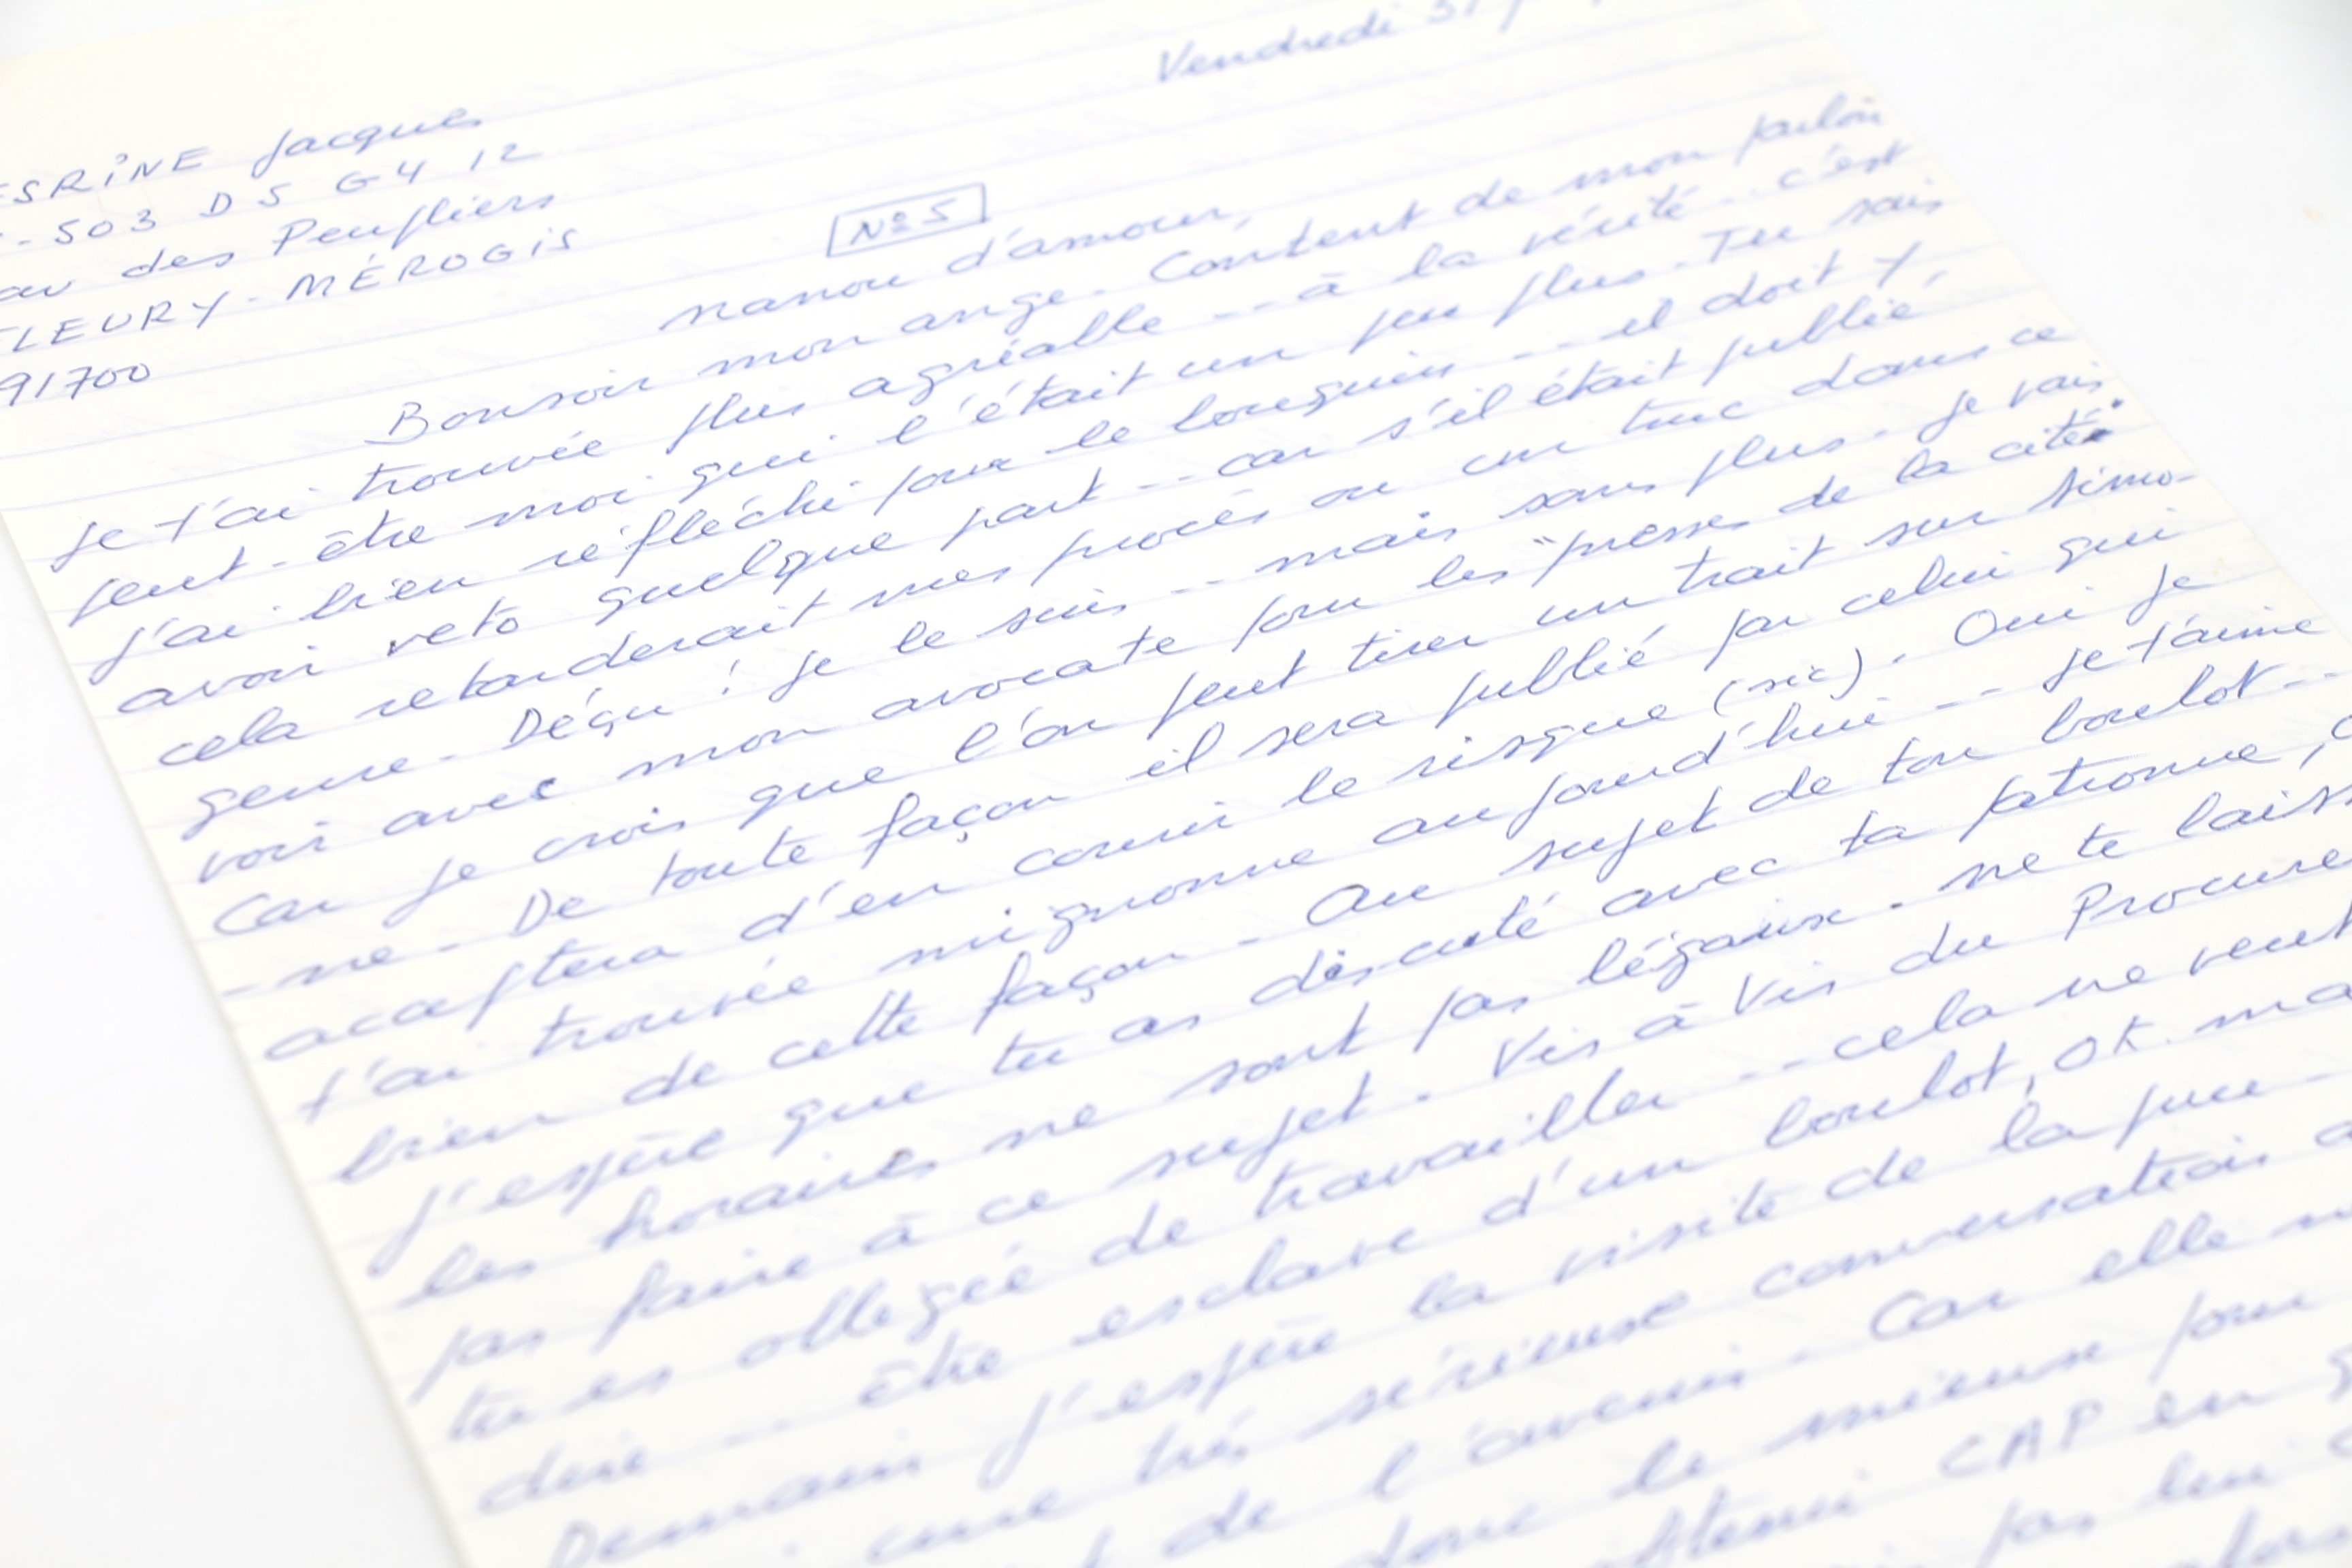 Vendredi 31
ESRINE Jacques
-503 D5 G4 12
av des Peupliers
FLEURY-MÉROGIS
91700
N° 5
nanou d'amour,
Bonsoir mon ange. Content de mon parloir
je t'ai trouvée plus agréable -- à la vérité -- c'est
peut-être moi qui l'était un peu plus. Tu sais
j'ai bien réfléchi pour le bouquin -- il doit y
avoir veto quelque part -- car s'il était publié,
cela retarderait mes procés ou un truc dans ce
genre. Déçu! je le suis -- mais sans plus. je vais
voir avec mon avocate pour les "presses de la cité"
Car je crois que l'on peut tirer un trait sur simo-
-ne. De toute façon il sera publié par celui qui
acceptera d'en courir le risque (sic). Oui je
t'ai trouvée mignonne aujourd'hui -- je t'aime
bien de cette façon. Au sujet de ton boulot --
j'espère que tu as discuté avec ta patronne,
les horaires ne sont pas légaux. ne te laiss
pas faire à ce sujet. Vis à Vis du Procure
tu es obligée de travailler -- cela ne veut
dire -- être esclave d'un boulot, OK. ma
Demain j'espère la visite de la puce -
une trés sérieuse conversation a
de l'avenir. Car elle
donc le mieux pour
obtenu CAP en
pas lui